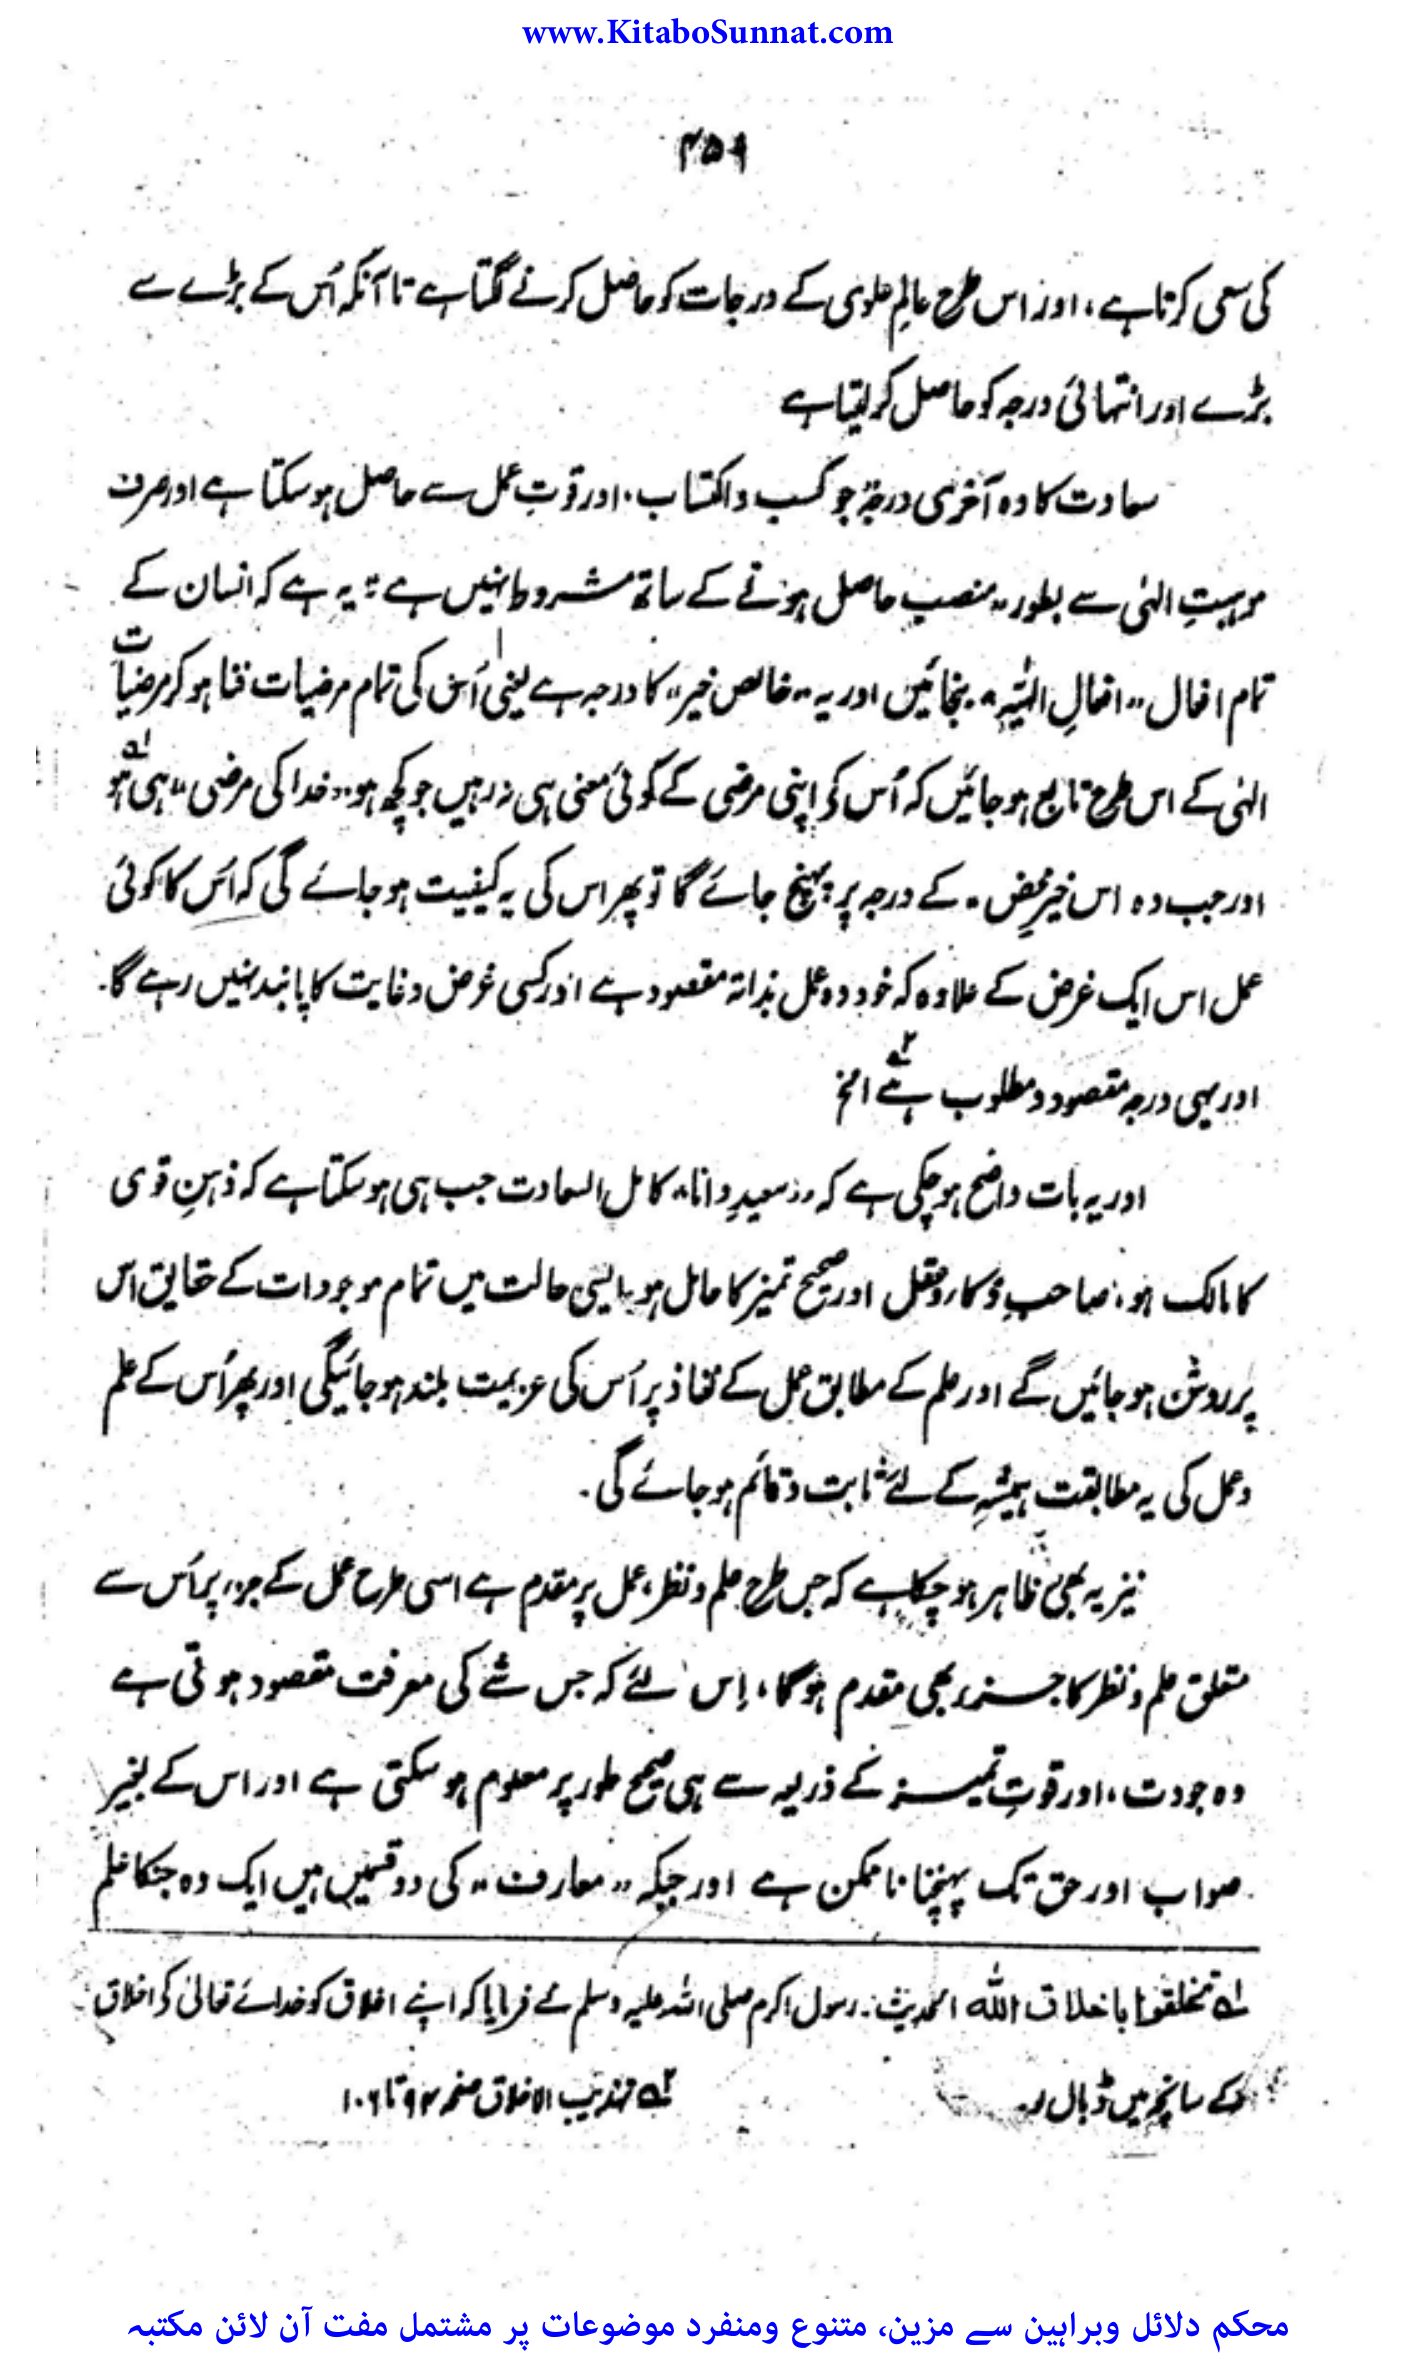 www.KitaboSunnat.com
۴۵۹
کی سعی کرتا ہے، اور اس طرح عالمِ علوی کے درجات کو حاصل کرنے لگتا ہے تا آنکہ اُس کے بڑے سے
بڑے اور انتہائی درجہ کو حاصل کر لیتا ہے
سعادت کا وہ آخری درجہ جو کسب و اکتساب، اور قوتِ عمل سے حاصل ہو سکتا ہے اور صرف
موہبتِ الٰہی سے بطور "منصب حاصل ہونے کے ساتھ مشروط نہیں ہے" یہ ہے کہ انسان کے
تمام افعال "افعالِ الٰہیہ" بنجائیں اور یہ "خالص خیر" کا درجہ ہے یعنی اُس کی تمام مرضیات فنا ہو کر مرضیات
الٰہی کے اس طرح تابع ہو جائیں کہ اُس کی اپنی مرضی کے کوئی معنی ہی نہ رہیں جو کچھ ہو "خدا کی مرضی" ہی ہو ۱ے
اور جب وہ اس خیرِ محض کے درجہ پر پہنچ جائے گا تو پھر اس کی یہ کیفیت ہو جائے گی کہ اُس کا کوئی
عمل اس ایک غرض کے علاوہ کہ خود وہ عمل بذاتہٖ مقصود ہے اور کسی غرض و غایت کا پابند نہیں رہے گا۔
اور یہی درجہ مقصود و مطلوب ہے ۲ے الخ
اور یہ بات واضح ہو چکی ہے کہ "سعیدِ دانا" کامل السعادت جب ہی ہو سکتا ہے کہ ذہنِ قوی
کا مالک ہو، صاحبِ ذکاء و عقل اور صحیح تمیز کا حامل ہو ایسی حالت میں تمام موجودات کے حقایق اس
پر روشن ہو جائیں گے اور علم کے مطابق عمل کے نفاذ پر اُس کی عزیمت بلند ہو جائیگی اور پھر اُس کے علم
و عمل کی یہ مطابقت ہمیشہ کے لئے ثابت و قائم ہو جائے گی۔
نیز یہ بھی ظاہر ہو چکا ہے کہ جس طرح علم و نظر، عمل پر مقدم ہے اسی طرح عمل کے جزء پر اُس سے
متعلق علم و نظر کا جزء بھی مقدم ہوگا، اِس لئے کہ جس شے کی معرفت مقصود ہوتی ہے
وہ جودت، اور قوتِ تمیز کے ذریعہ سے ہی صحیح طور پر معلوم ہو سکتی ہے اور اس کے بغیر
صواب اور حق تک پہنچنا ناممکن ہے اور جبکہ "معارف" کی دو قسمیں ہیں ایک وہ جنکا علم
۱ے تخلقوا باخلاق اللہ الحدیث: رسول اکرم صلی اللہ علیہ وسلم نے فرمایا کہ اپنے اخلاق کو خدائے تعالیٰ کے اخلاق
کے سانچہ میں ڈھال لو۔ ۲ے تہذیب الاخلاق صفحہ ۹۷ تا ۱۰۶
محکم دلائل وبراہین سے مزین، متنوع ومنفرد موضوعات پر مشتمل مفت آن لائن مکتبہ